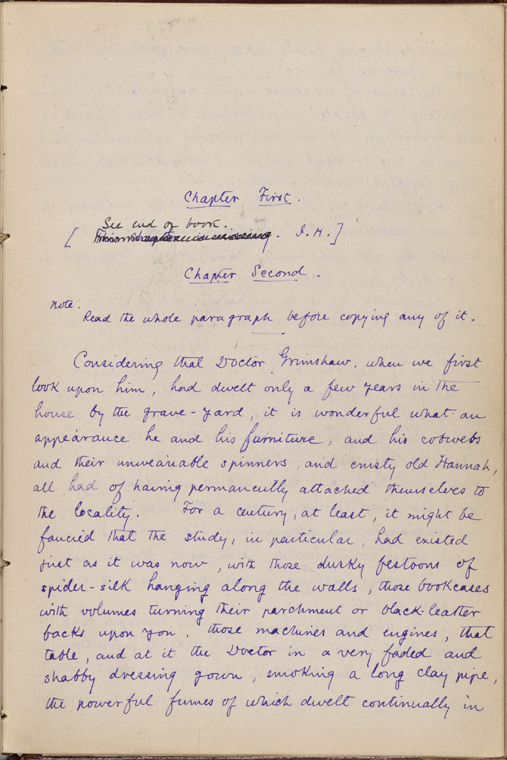 Chapter First.
See end of book.
[ This chapter is missing. I. H. ]
Chapter Second.
Note.
Read the whole paragraph before copying any of it.
Considering that Doctor Grimshaw, when we first
look upon him, had dwelt only a few years in the
house by the grave-yard, it is wonderful what an
appearance he and his furniture, and his cobwebs
and their unweariable spinners, and crusty old Hannah,
all had of having permanently attached themselves to
the locality. For a century, at least, it might be
fancied that the study, in particular, had existed
just as it was now, with those dusky festoons of
spider-silk hanging along the walls, those bookcases
with volumes turning their parchment or black-leather
backs upon you, those machines and engines, that
table, and at it the Doctor in a very faded and
shabby dressing gown, smoking a long clay pipe,
the powerful fumes of which dwelt continually in